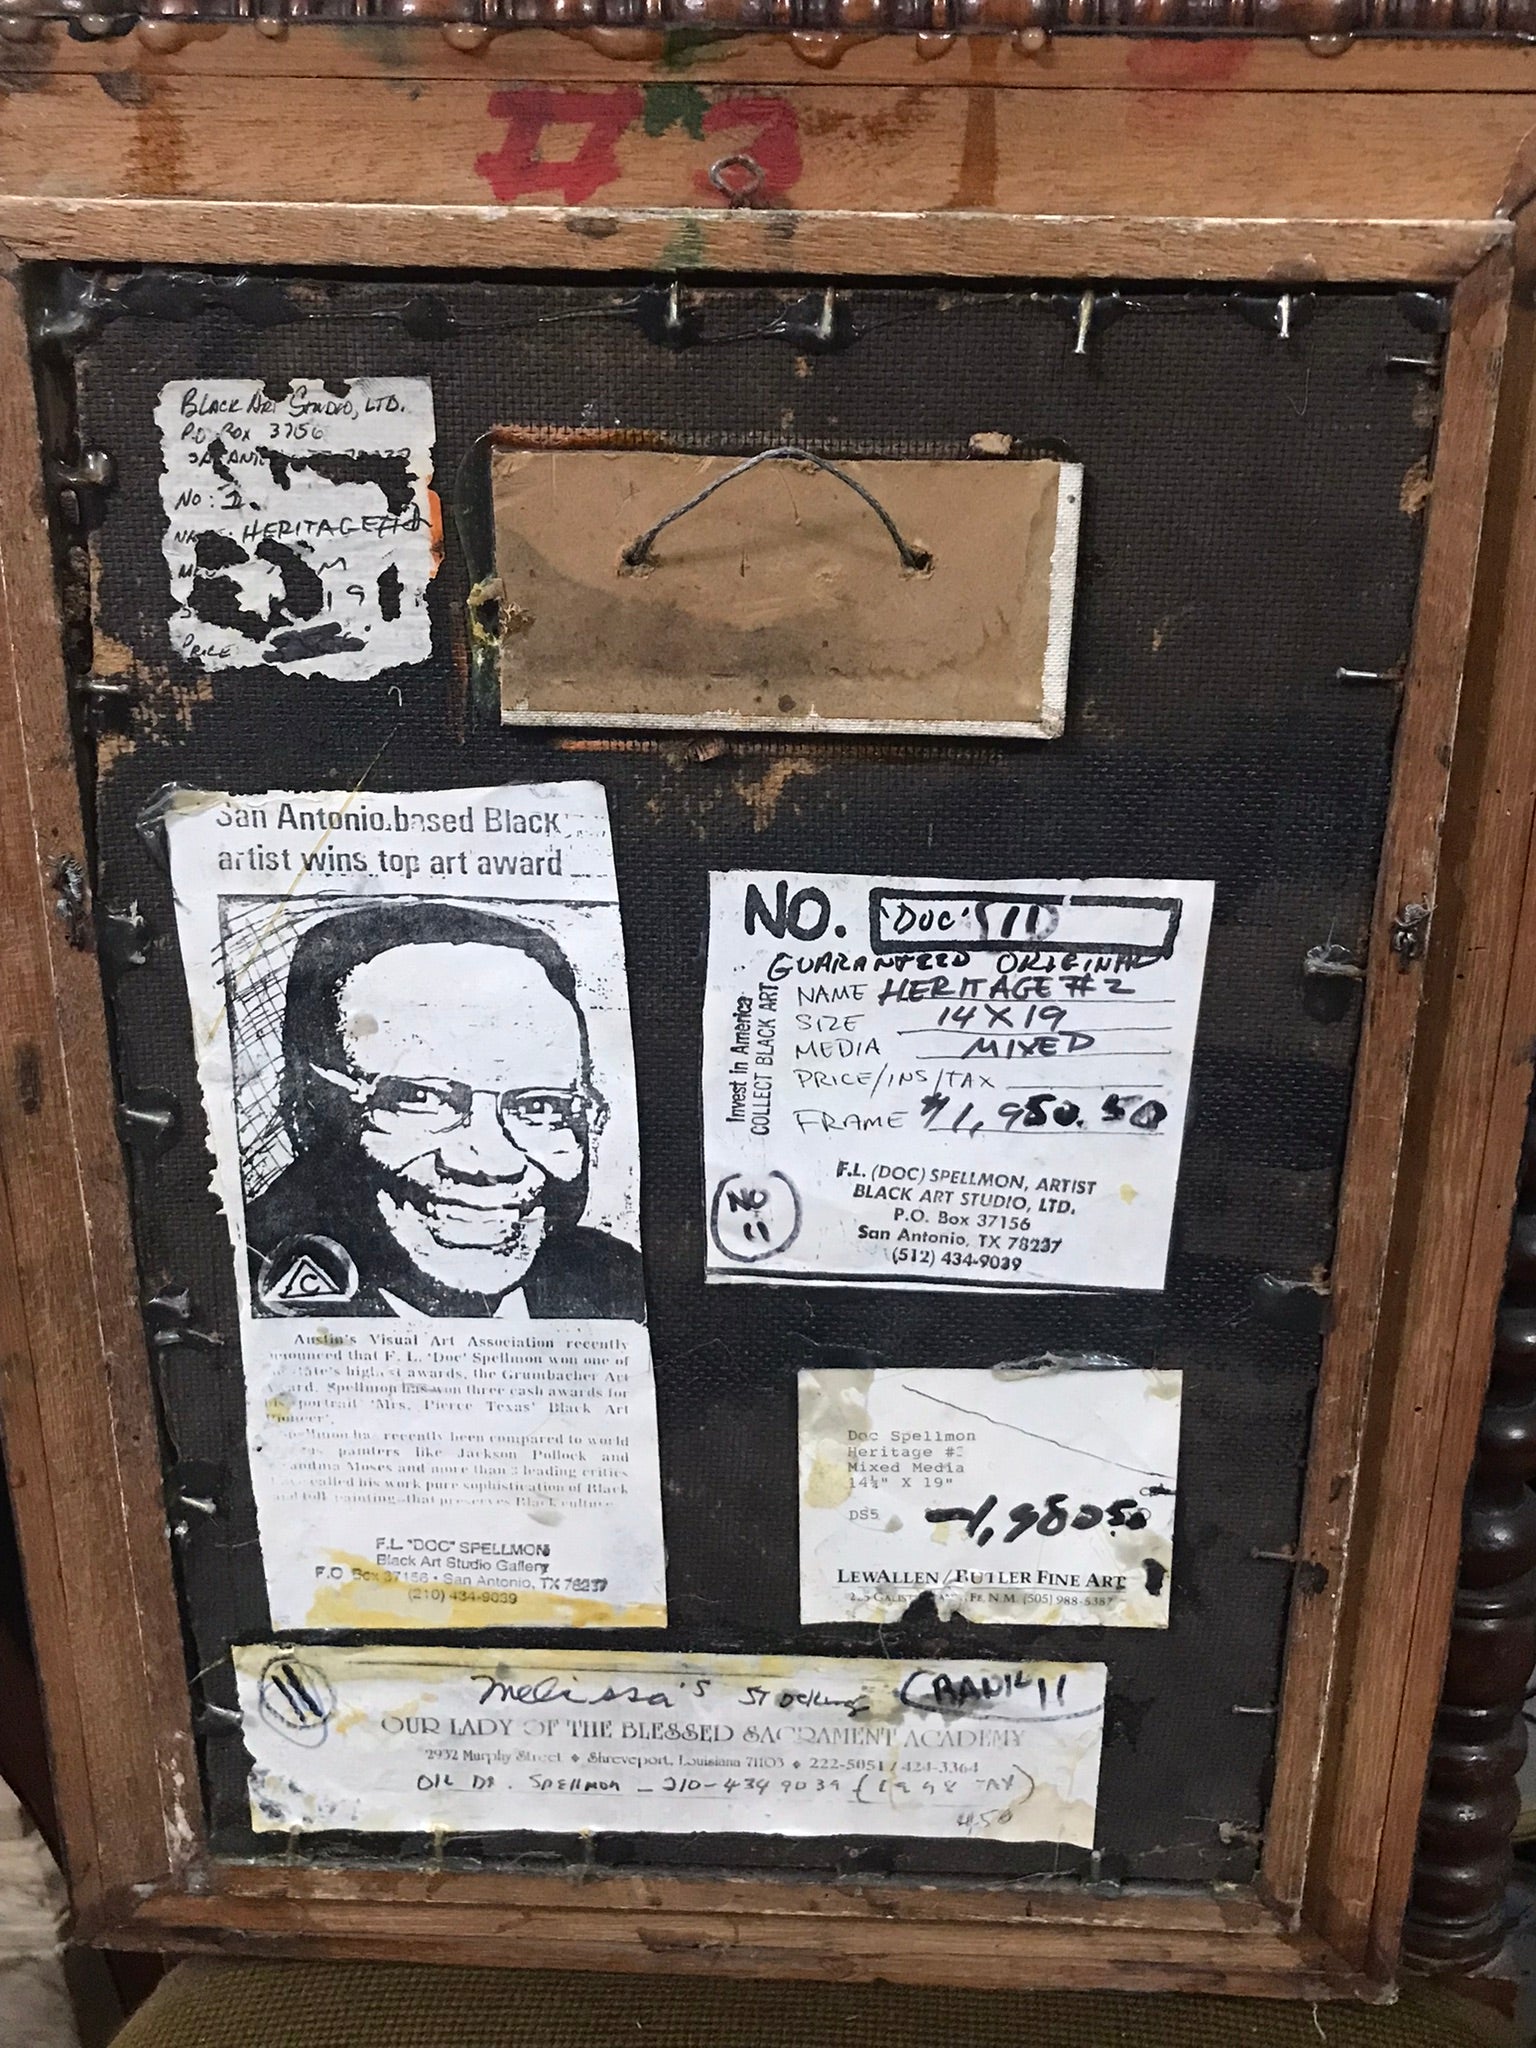 BLACK ART STUDIO, LTD.
P.O. BOX 3756
NO:
HERITAGE
M
19
PRICE
San Antonio-based Black
artist wins top art award
C
Austin's Visual Art Association recently
announced that F. L. 'Doc' Spellmon won one of
highest awards, the Grumbacher Art
Award. Spellmon has won three cash awards for
his portrait 'Mrs. Pierce Texas' Black Art
Pioneer'.
Spellmon has recently been compared to world
painters like Jackson Pollock and
Grandma Moses and more than 3 leading critics
have called his work pure sophistication of Black
and folk painting-that preserves Black culture
F.L. "DOC" SPELLMON
Black Art Studio Gallery
P.O. Box 37156 • San Antonio, TX 78237
(210) 434-9039
NO. 'DOC' 11
GUARANTEED ORIGINAL
NAME HERITAGE #2
SIZE 14 X 19
MEDIA MIXED
PRICE/INS/TAX
FRAME $1,950.50
Invest in America
COLLECT BLACK ART
F.L. (DOC) SPELLMON, ARTIST
BLACK ART STUDIO, LTD.
P.O. Box 37156
San Antonio, TX 78237
(512) 434-9039
Doc Spellmon
Heritage #
Mixed Media
14½" X 19"
DS5
LEWALLEN / BUTLER FINE ART
FE, N.M. (505) 988-5387
11 Melissa's Stocking (RANK 11
OUR LADY OF THE BLESSED SACRAMENT ACADEMY
2932 Murphy Street ◆ Shreveport, Louisiana 71103 ◆ 222-5051 / 424-3364
SPELLMON - 210-434 9039 (1998 TAX)
450